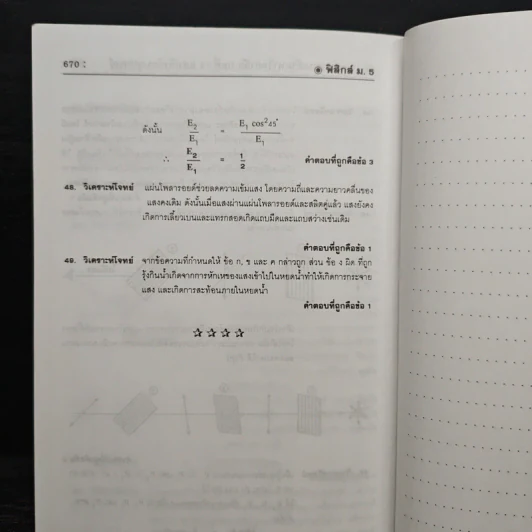 670 :
◉ ฟิสิกส์ ม. 5
ดังนั้น E₂/E₁ = E₁ cos²45°/E₁
∴ E₂/E₁ = 1/2 คำตอบที่ถูกคือข้อ 3
48. วิเคราะห์โจทย์ แผ่นโพลารอยด์ช่วยลดความเข้มแสง โดยความถี่และความยาวคลื่นของ
แสงคงเดิม ดังนั้นเมื่อแสงผ่านแผ่นโพลารอยด์และสลิตคู่แล้ว แสงยังคง
เกิดการเลี้ยวเบนและแทรกสอดเกิดแถบมืดและแถบสว่างเช่นเดิม
คำตอบที่ถูกคือข้อ 1
49. วิเคราะห์โจทย์ จากข้อความที่กำหนดให้ ข้อ ก, ข และ ค กล่าวถูก ส่วน ข้อ ง ผิด ที่ถูก
รุ้งกินน้ำเกิดจากการหักเหของแสงเข้าไปในหยดน้ำทำให้เกิดการกระจาย
แสง และเกิดการสะท้อนภายในหยดน้ำ
คำตอบที่ถูกคือข้อ 1